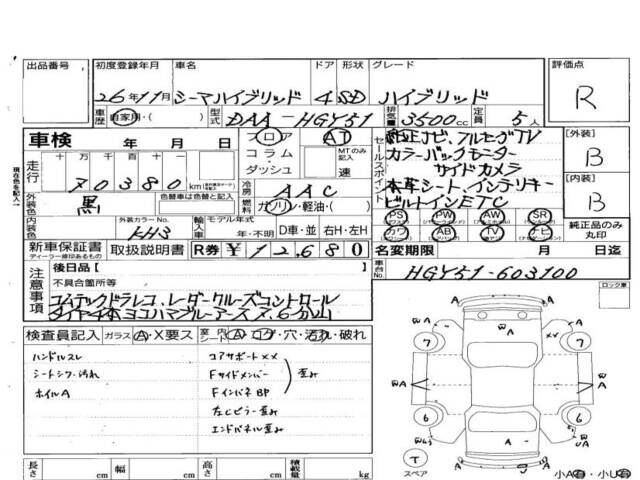 出品番号 初度登録年月 車名 ドア 形状 グレード 評価点
26年11月 シーマハイブリッド 4 SD ハイブリッド R
車歴 自家用・( ) 型式 DAA-HGY51 排気量 3500cc 定員 5人
車検 年 月 日 フロア AT
コラム・ダッシュ MTのみ記入 速
セールスポイント
純正ナビ、フルセグTV
カラーバックモニター
サイドカメラ
本革シート、インテリキー
ビルトインETC
[外装] B
[内装] B
現在色を記入
走行 十 万 千 百 十 一
70380km
冷房 AAC
外装色 黒 車歴替は色替と記入
燃料 ガソリン・軽油・( )
内装色 外装カラーNo. KH3 輸入車 モデル年式 年・不明 D車・並 右H・左H
PS PW AW SR
カワ AB TV ナビ
純正品のみ丸印
新車保証書 取扱説明書 R券 ¥12,680
ディーラー捺印あるもの
名変期限 月 日迄
車台No. HGY51-603100
注意事項
後日品[ ]
不具合箇所等
コムテックドラレコ、レーダークルーズコントロール
タイヤ4本ヨコハマブルーアース 7、6分山
ロック車
検査員記入 ガラス A・X要ス 室内シート A・コゲ・穴・汚れ・破れ
ハンドルスレ
シートシワ・汚れ
ホイルA
コアサポートXX
Fサイドメンバー
FインパネBP
歪み
左Cピラー歪み
エンドパネル歪み
A A
7 7
A
A A
6 6
A A
T
スペア
小A有・小U有
長さ cm 幅 cm 高さ cm 積載量 kg